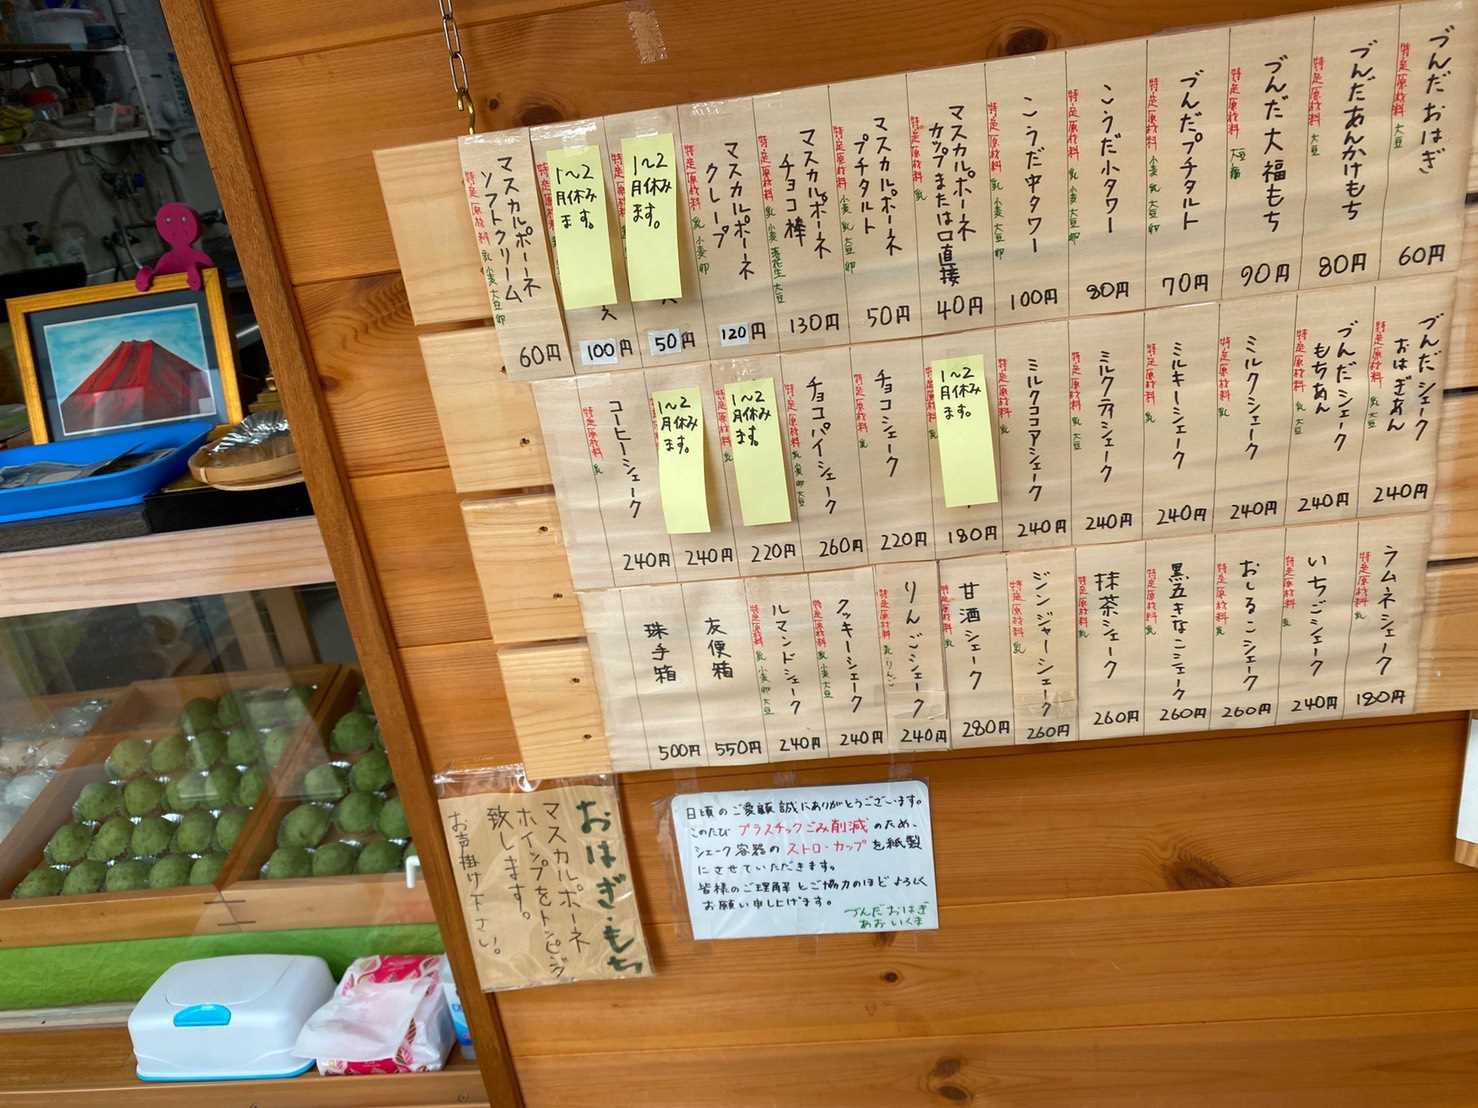 づんだおはぎ
特定原材料 大豆
60円
づんだあんかけもち
特定原材料 大豆
80円
づんだ大福もち
特定原材料 大豆
90円
づんだプチタルト
特定原材料 小麦 乳 大豆 卵
70円
こうだ小タワー
特定原材料 乳 小麦 大豆 卵
80円
こうだ中タワー
特定原材料 乳 小麦 大豆 卵
100円
マスカルポーネ
カップまたは口直接
特定原材料 乳
40円
マスカルポーネ
プチタルト
特定原材料 小麦 乳 大豆 卵
50円
マスカルポーネ
チョコ棒
特定原材料 乳 小麦 落花生 大豆
130円
マスカルポーネ
クレープ
特定原材料 乳 小麦 卵
120円
1〜2
月休み
ます。
50円
1〜2
月休み
ます。
100円
マスカルポーネ
ソフトクリーム
特定原材料 乳 小麦 大豆 卵
60円
づんだシェーク
おはぎあん
特定原材料 乳 大豆
240円
づんだシェーク
もちあん
特定原材料 乳 大豆
240円
ミルクシェーク
特定原材料 乳
240円
ミルキーシェーク
特定原材料 乳
240円
ミルクティシェーク
特定原材料 乳 大豆
240円
ミルクココアシェーク
特定原材料 乳
240円
1〜2
月休み
ます。
180円
チョコシェーク
特定原材料 乳
220円
チョコパイシェーク
特定原材料 乳 小麦 卵 大豆
260円
1〜2
月休み
ます。
220円
1〜2
月休み
ます。
240円
コーヒーシェーク
特定原材料 乳
240円
ラムネシェーク
特定原材料 乳
180円
いちごシェーク
特定原材料 乳
240円
おしるこシェーク
特定原材料 乳
260円
黒五きなこシェーク
特定原材料 乳
260円
抹茶シェーク
特定原材料 乳
260円
ジンジャーシェーク
特定原材料 乳
260円
甘酒シェーク
特定原材料 乳
280円
りんごシェーク
特定原材料 乳 りんご
240円
クッキーシェーク
特定原材料 乳 小麦 大豆
240円
ルマンドシェーク
特定原材料 乳 小麦 卵 大豆
240円
友便箱
550円
珠手箱
500円
おはぎ・もち
マスカルポーネ
ホイップをトッピング
致します。
お声掛け下さい。
日頃のご愛顧誠にありがとうございます。
このたび プラスチックごみ削減 のため、
シェーク容器の ストロ・カップ を紙製
にさせていただきます。
皆様のご理解とご協力のほどよろしく
お願い申し上げます。
づんだおはぎ
あおいくま